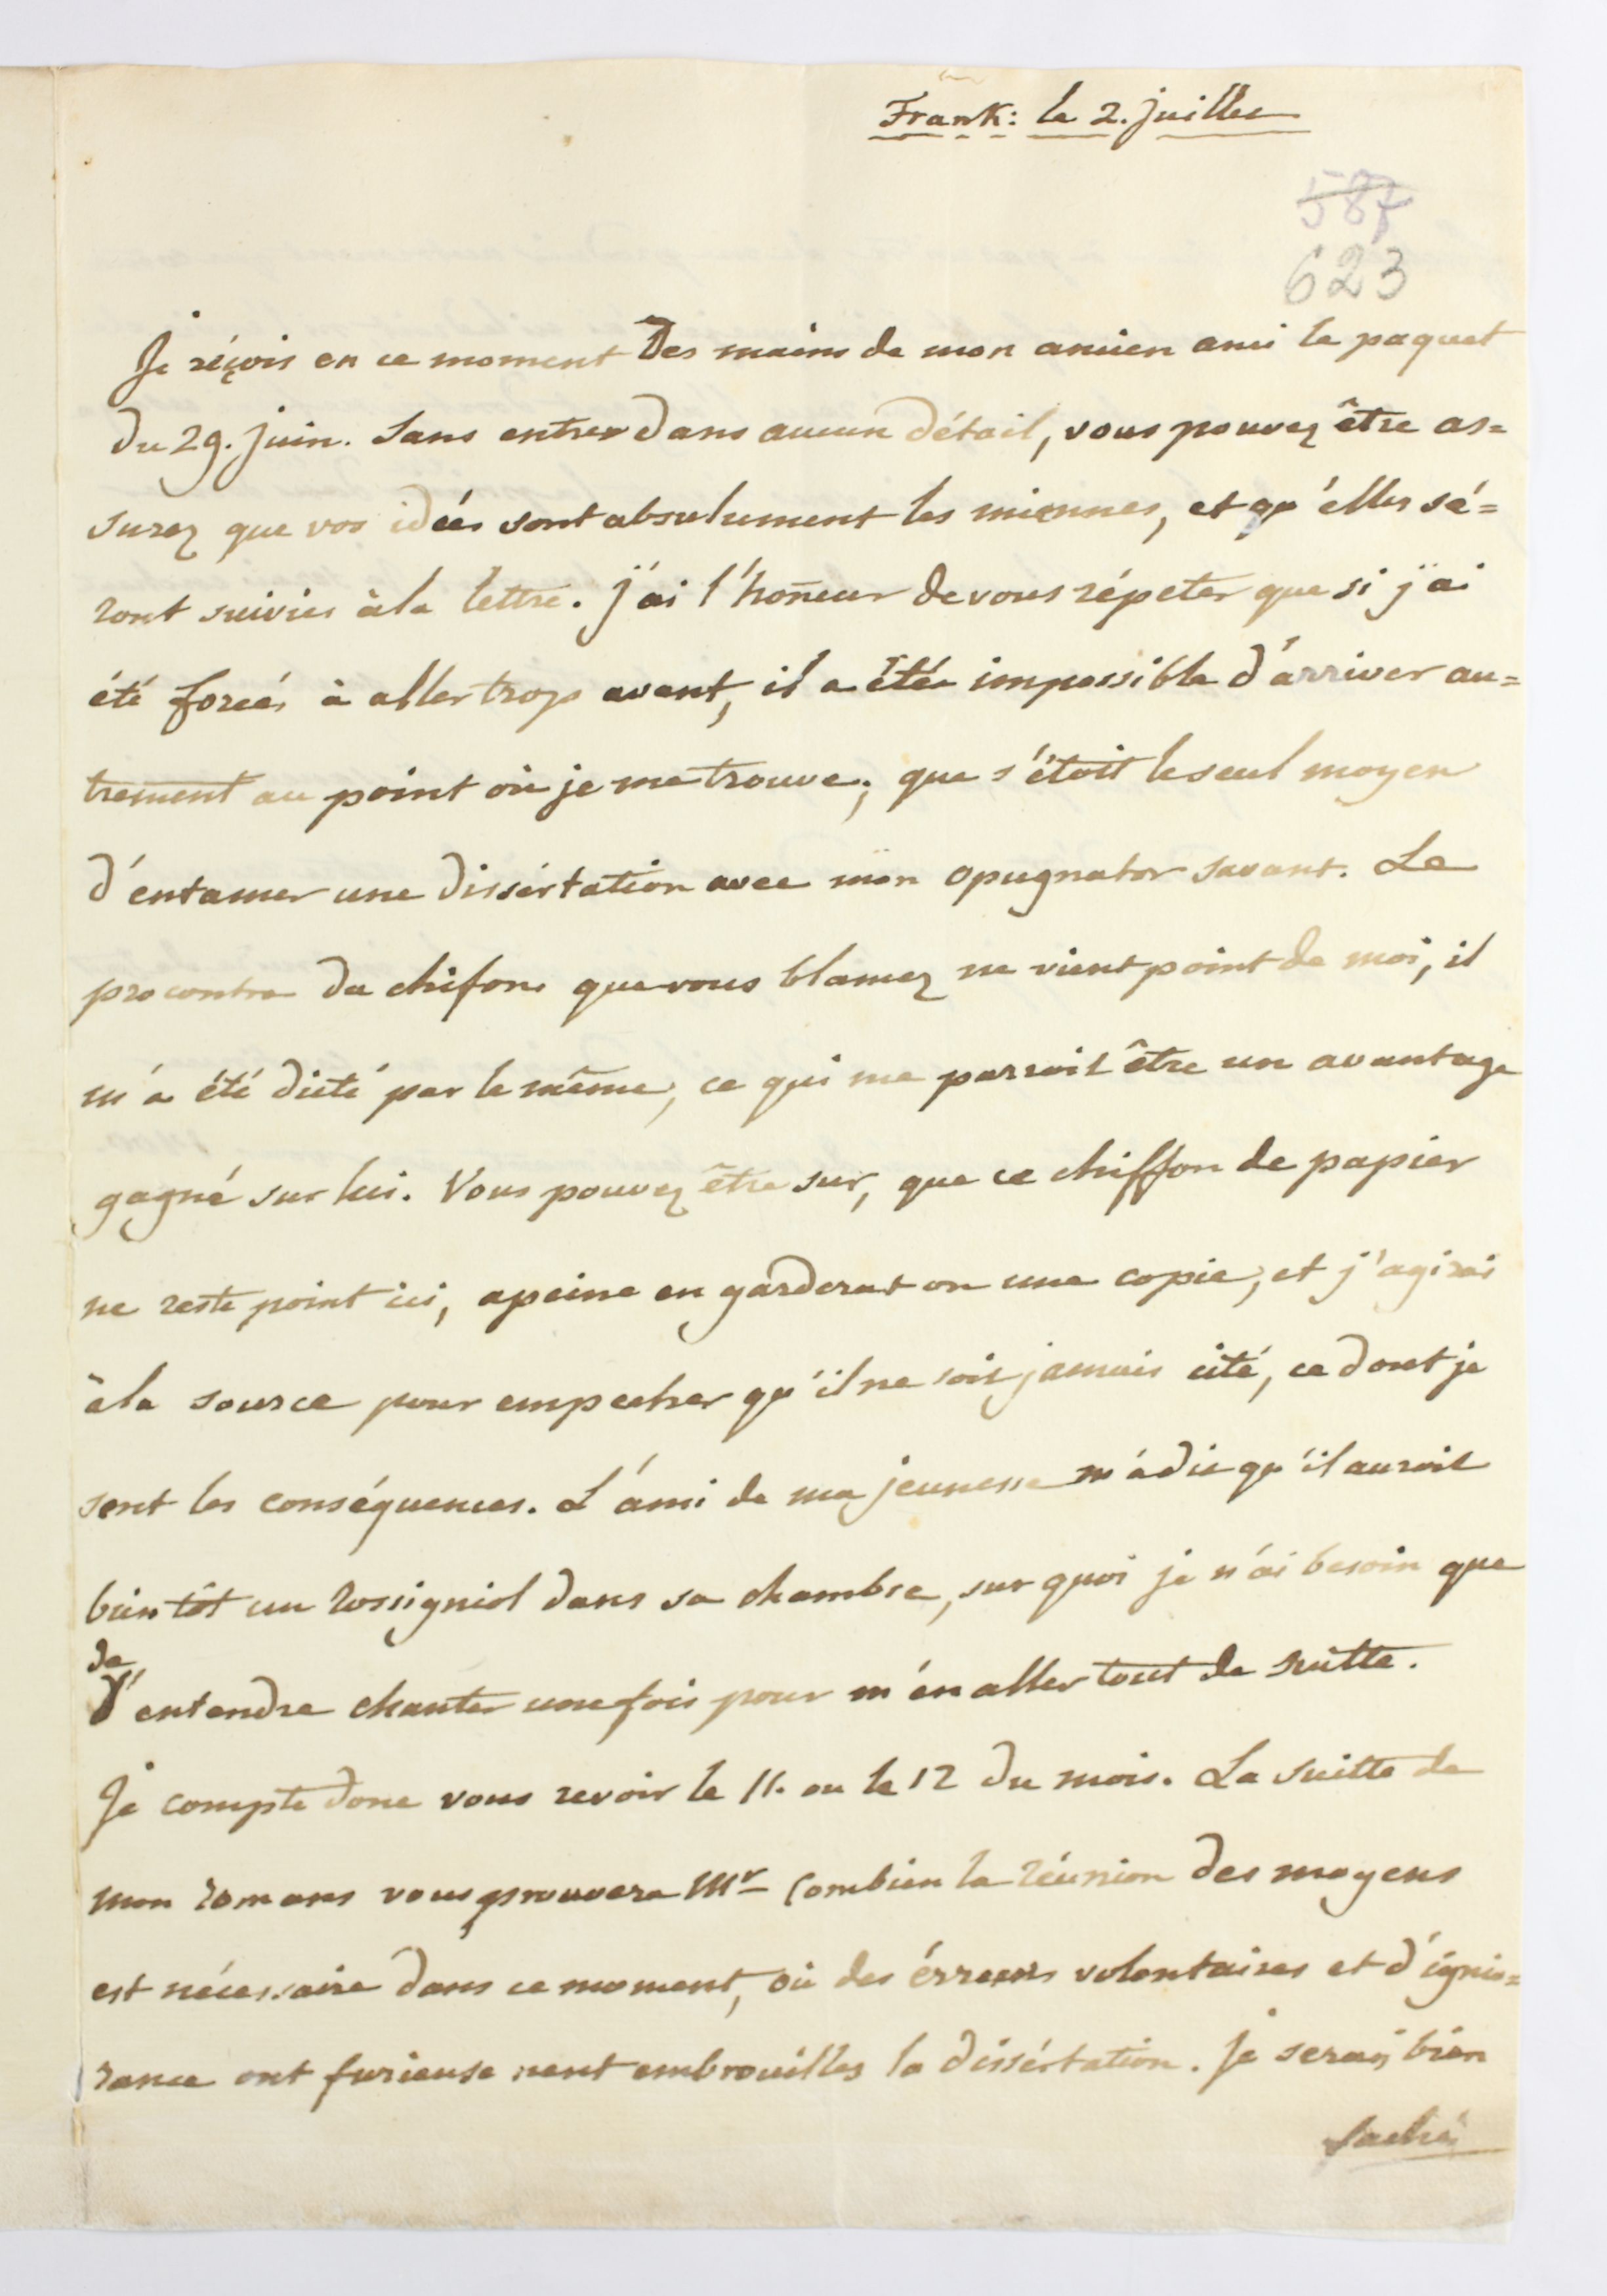 Frank: le 2. juillet
587
623
Je réçois en ce moment des mains de mon ancien ami le paquet
du 29. juin. Sans entrer dans aucun détail, vous pouvez être as=
surez que vos idées sont absolument les miennes, et qu'élles sé=
ront suivies à la lettre. J'ai l'hoñeur de vous répeter que si j'ai
été forcé à aller trop avant, il a été impossible d'arriver au=
trement au point où je me trouve; que s'étoit le seul moyen
d'entamer une dissértation avec mon opugnator savant. Le
pro contra du chifon que vous blamez ne vient point de moi, il
m'a été dicté par le même, ce qui me parroit être un avantage
gagné sur lui. Vous pouvez être sur, que ce chiffon de papier
ne reste point ici, apeine en garderat on une copie, et j'agirai
à la source pour empecher qu'il ne soit jamais cité, ce dont je
sent les conséquences. L'ami de ma jeunesse m'a dit qu'il auroit
bientôt un rossigniol dans sa chambre, sur quoi je n'ai besoin que
de
d'entendre chanter une fois pour m'én aller tout de suitte.
Je compte donc vous revoir le 11. ou le 12 du mois. La suitte de
mon romans vous prouvera Mr combien la réunion des moyens
est nécessaire dans ce moment, où des érreurs volontaires et d'ignio=
rance ont furieusement embrouillés la dissértation. Je serai bien
faché